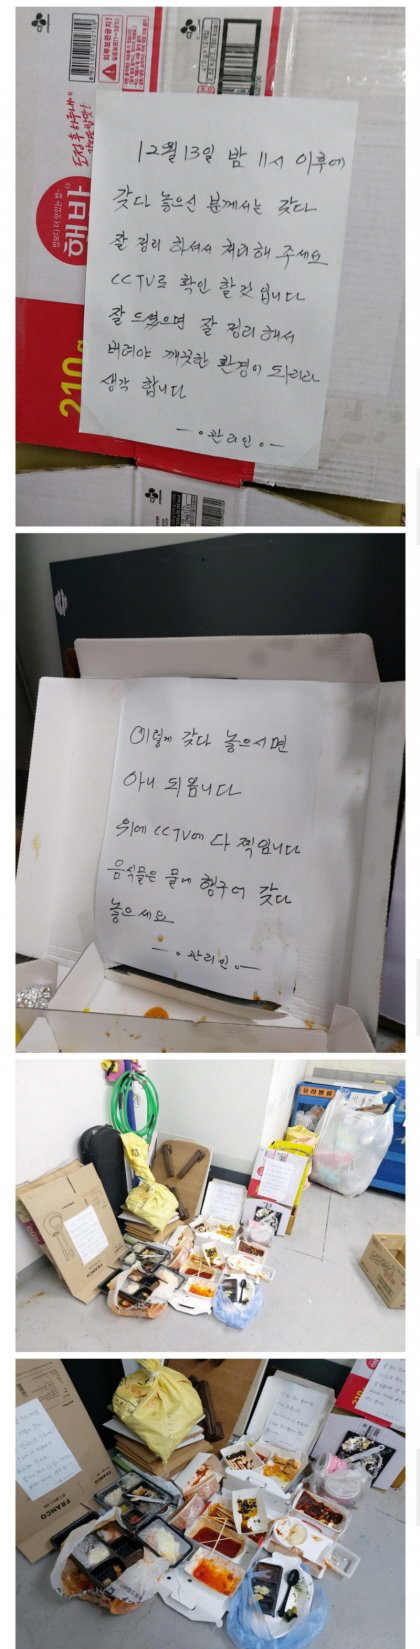 햇반
210g
12월 13일 밤 11시 이후에
갖다 놓으신 분께서는 갖다
잘 정리 하셔서 처리해 주세요
CCTV로 확인 할것 입니다
잘 드셨으면 잘 정리해서
버려야 깨끗한 환경이 되리라
생각 합니다
관리인
이렇게 갖다 놓으시면
아니 되옵니다
위에 CCTV에 다 찍힙니다
음식물은 물에 헹구어 갖다
놓으세요
관리인
유리병류
FRANCO
210
FRANCO